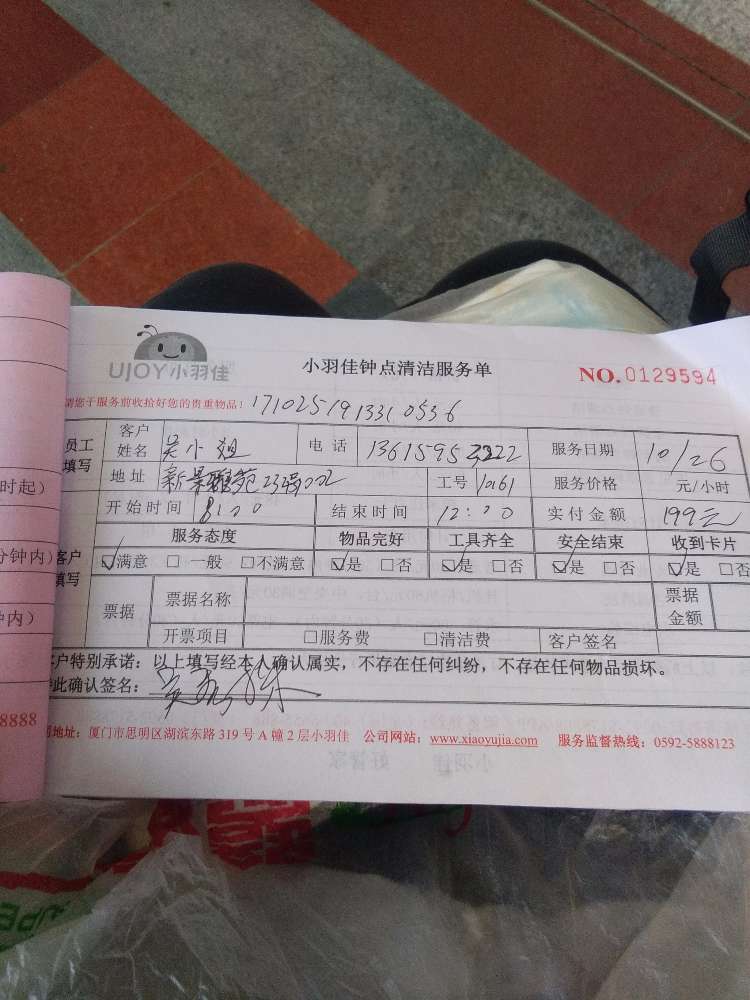 UJOY小羽佳
小羽佳钟点清洁服务单
NO.0129594
请您于服务前收拾好您的贵重物品！171025191331 0536
员工填写 客户姓名 吴小姐 电话 13615953222 服务日期 10/26
地址 新景雅苑23 工号 10161 服务价格 元/小时
开始时间 8:00 结束时间 12:00 实付金额 199元
客户填写 服务态度 物品完好 工具齐全 安全结束 收到卡片
☑满意 □一般 □不满意 ☑是 □否 ☑是 □否 ☑是 □否 ☑是 □否
票据 票据名称 票据金额
开票项目 □服务费 □清洁费 客户签名
客户特别承诺：以上填写经本人确认属实，不存在任何纠纷，不存在任何物品损坏。
特此确认签名：
司地址：厦门市思明区湖滨东路 319 号 A 幢 2 层小羽佳 公司网站：www.xiaoyujia.com 服务监督热线：0592-5888123
时起）
分钟内）
钟内）
8888